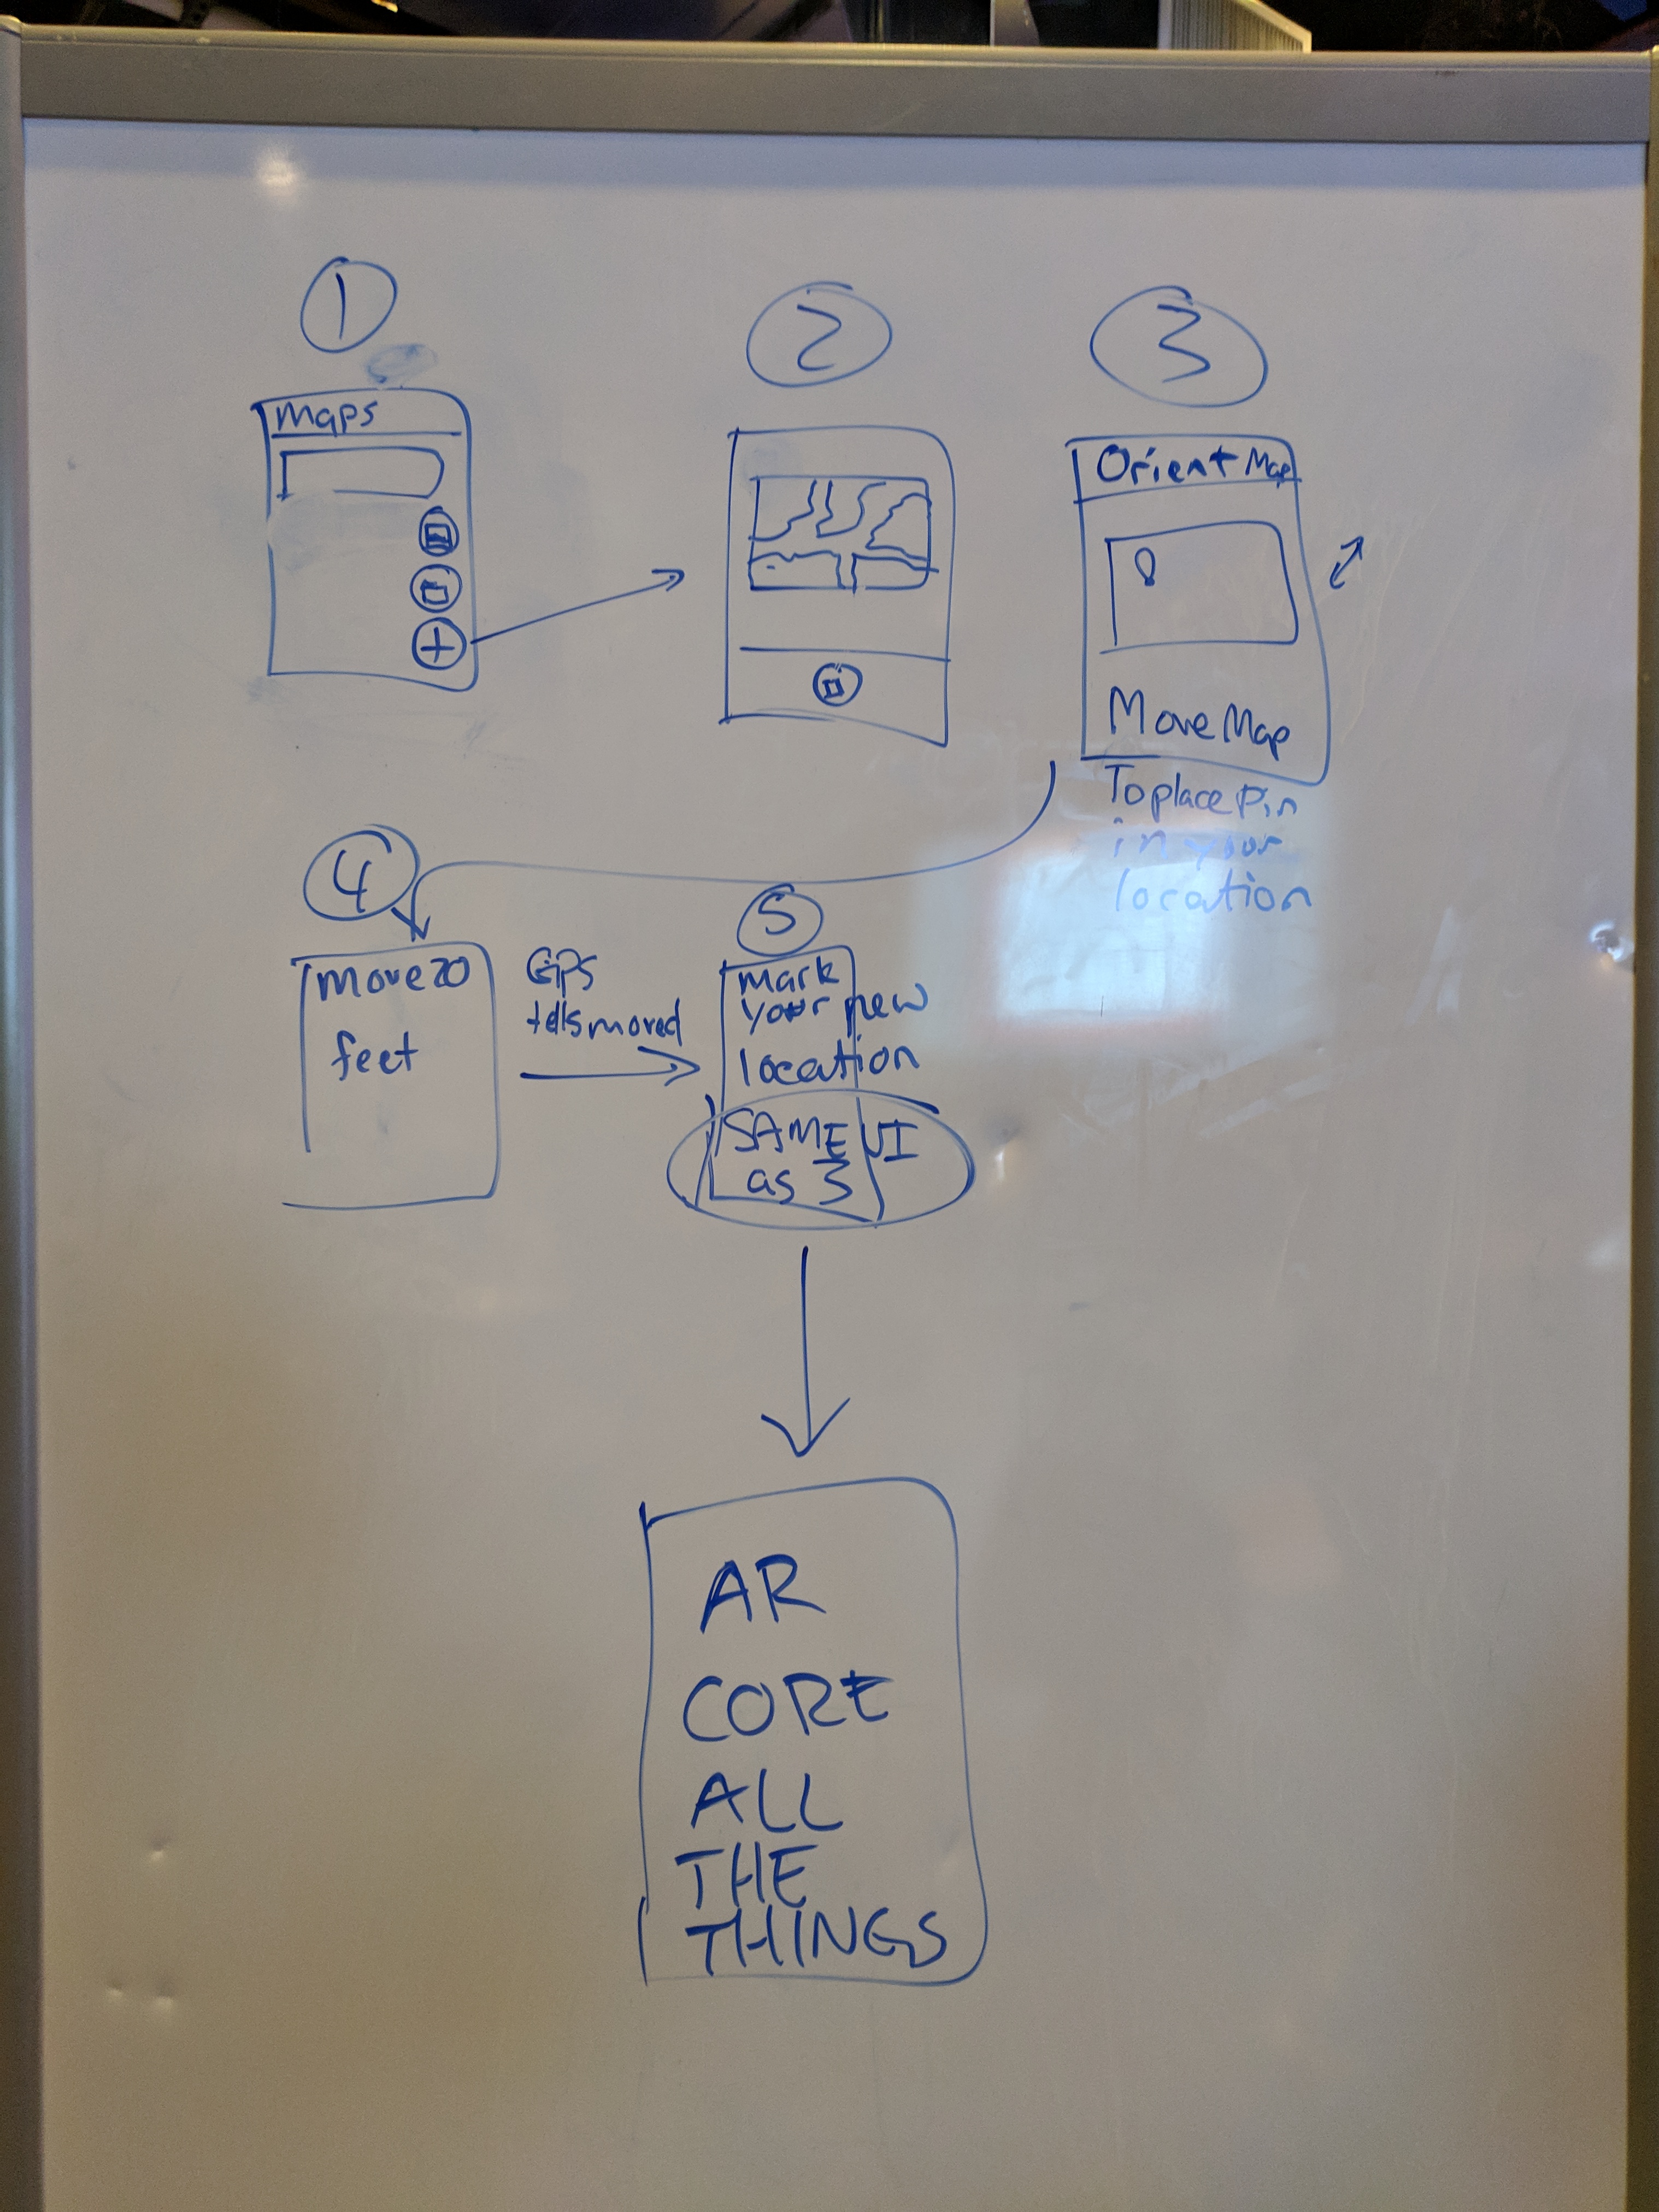 1
2
3
Maps
Orient Map
Move Map
To place Pin
in your
location
4
move 20
feet
GPS
tells moved
5
mark
your new
location
SAME UI
as 3
AR
CORE
ALL
THE
THINGS